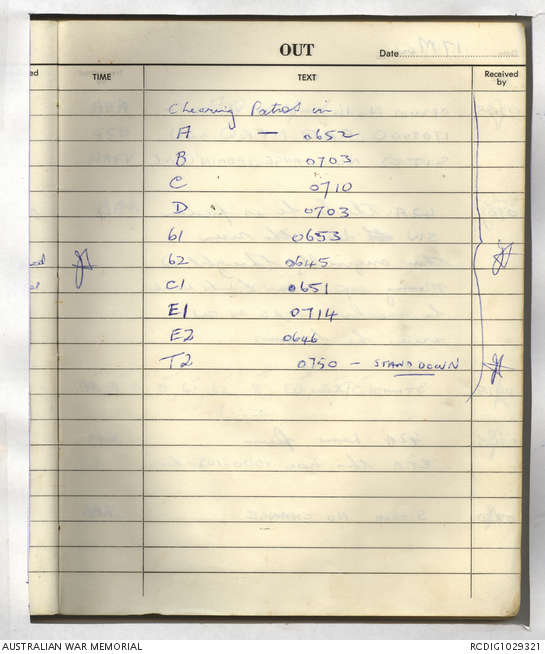 OUT
Date
ed TIME TEXT Received by
Clearing Patrols in
A — 0652
B 0703
C 0710
D 0703
61 0653
62 0645
C1 0651
E1 0714
E2 0646
T2 0750 - STAND DOWN
AUSTRALIAN WAR MEMORIAL RCDIG1029321